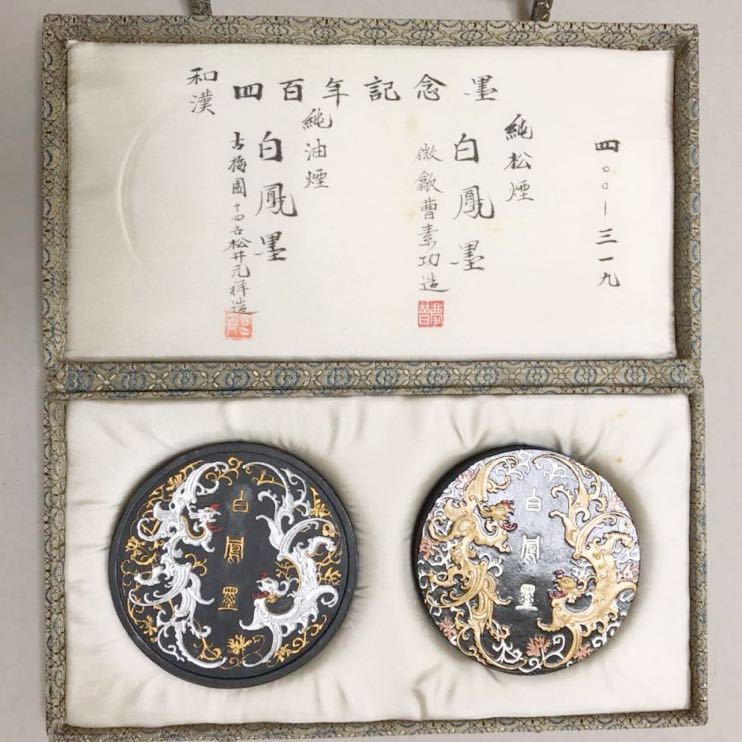 四〇〇—三一九
純松煙
白鳳墨
徽歙曹素功造
和漢
四百年記念墨
純油煙
白鳳墨
古梅園十四古松井元祥造
白鳳墨
白鳳墨